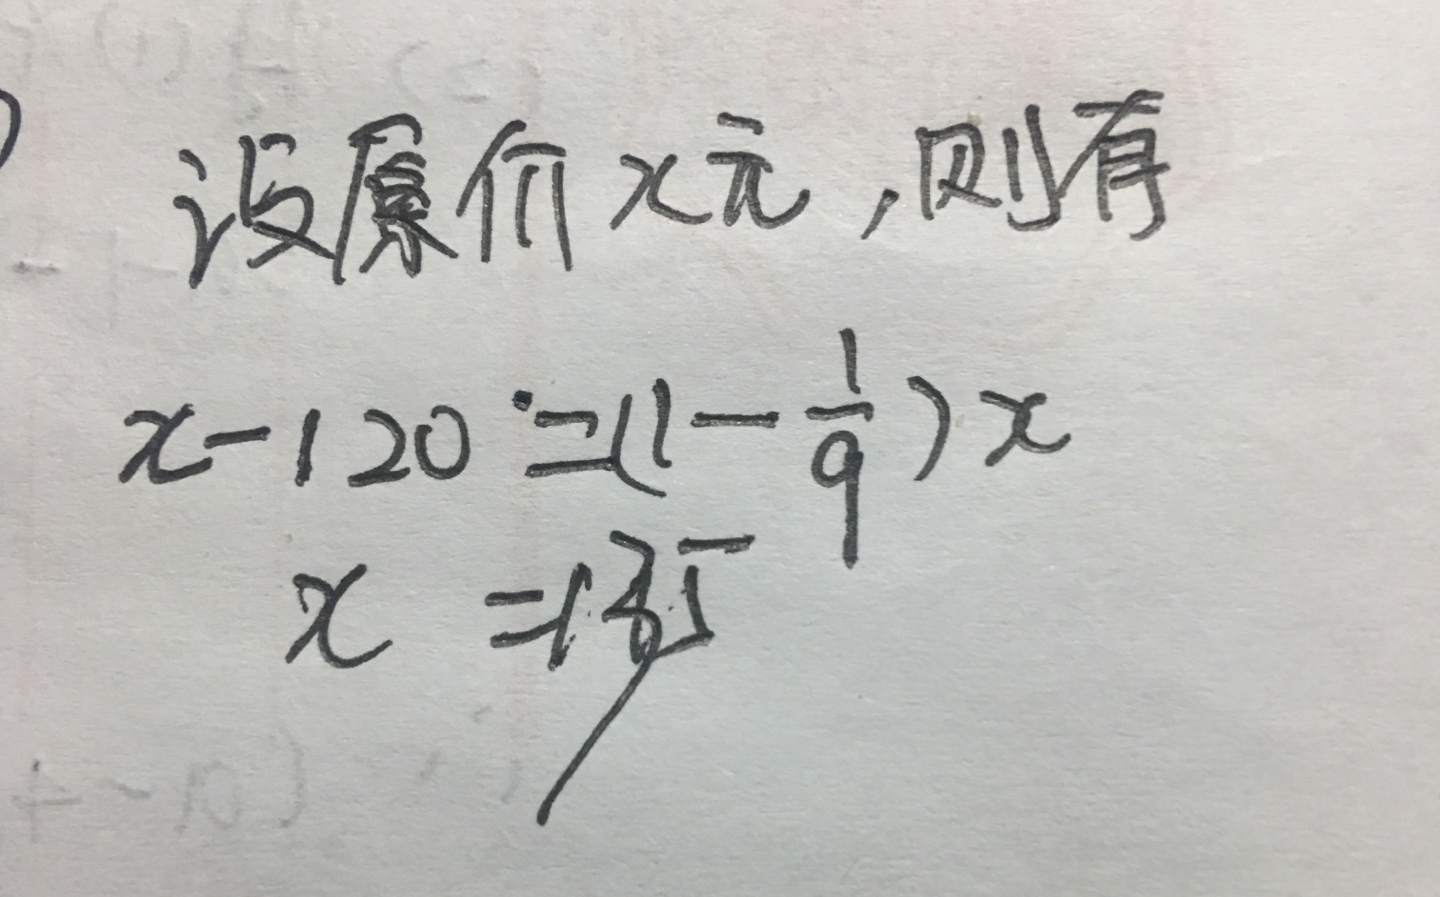 设原价x元,则有
x-120=(1-1/9)x
x=135